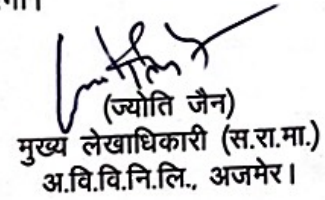 (ज्योति जैन)
मुख्य लेखाधिकारी (स.रा.मा.)
अ.वि.वि.नि.लि., अजमेर।